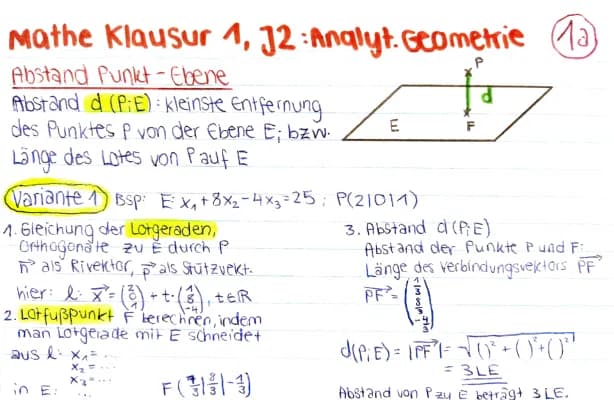 Mathe Klausur 1, J2: Analyt. Geometrie
1a
Abstand Punkt-Ebene
Abstand d(P;E): kleinste Entfernung
des Punktes P von der Ebene E; bzw.
Länge des Lotes von P auf E
P
d
E
F
Variante 1 BSP: E: x₁+8x₂-4x₃=25; P(2|0|1)
1. Gleichung der Lotgeraden,
Orthogonale zu E durch P
n⃗ als Rivektor, p⃗ als Stützvekt.
hier: l: x⃗ = (2 0 1) + t·(1 8 -4), t∈ℝ
2. Lotfußpunkt F berechnen, indem
man Lotgerade mit E schneidet
aus l: x₁=...
x₂=...
x₃=...
in E: ...
F(7/3|8/3|-1/3)
3. Abstand d(P;E)
Abstand der Punkte P und F:
Länge des Verbindungsvektors PF⃗
PF⃗ = (1/3 8/3 -4/3)
d(P;E) = |PF⃗| = √( )²+( )²+( )²
= 3LE
Abstand von P zu E beträgt 3LE.